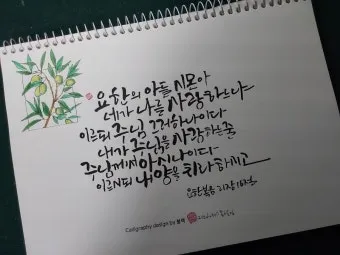 요한의 아들 시몬아
네가 나를 사랑하느냐
이르되 주님 그러하나이다
내가 주님을 사랑하는 줄
주님께서 아시나이다
이르시되 내 양을 치라 하시고
요한복음 21장 16절
Calligraphy design by